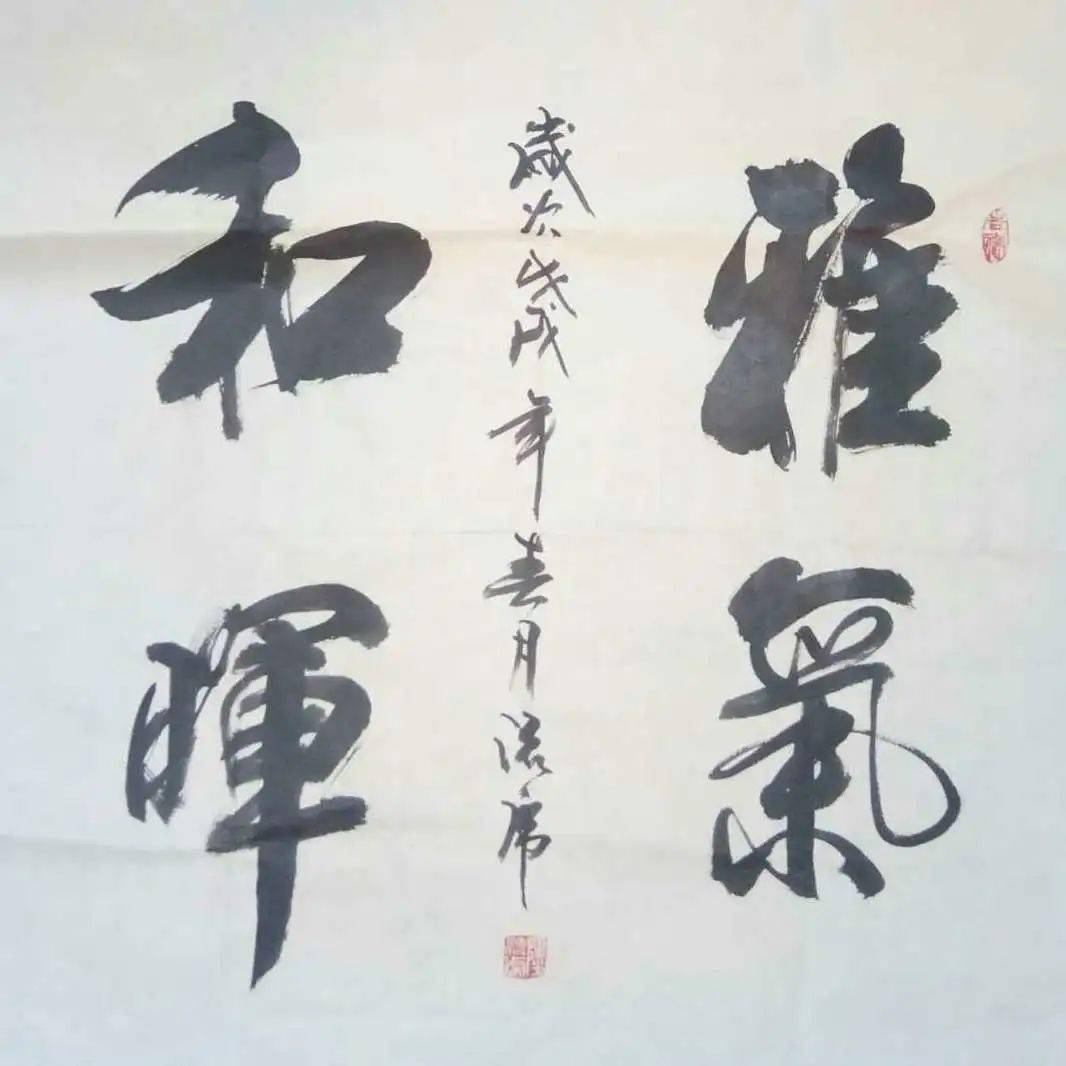 雅氣
歲次戊戌年春月
和暉